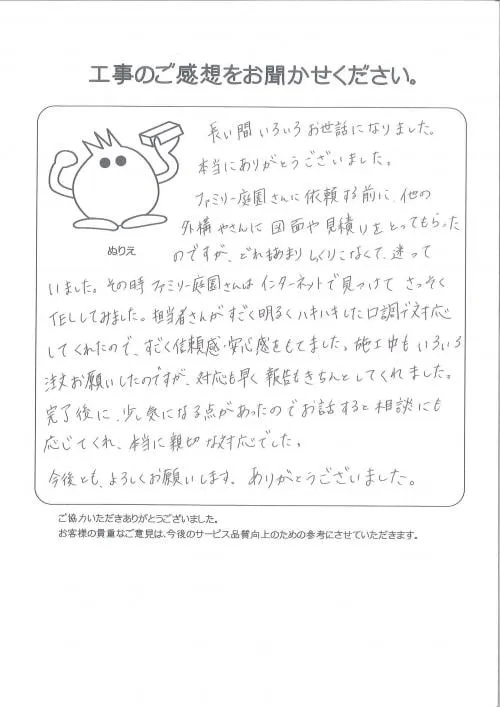 工事のご感想をお聞かせください。
長い間いろいろお世話になりました。
本当にありがとうございました。
ファミリー庭園さんに依頼する前に、他の
外構やさんに図面や見積りをとってもらった
ぬりえ
のですが、どれもあまりしっくりこなくて、迷って
いました。その時ファミリー庭園さんはインターネットで見つけて さっそく
TELしてみました。担当者さんがすごく明るくハキハキした口調デ対応
してくれたので、すごく信頼感・安心感をもてました。施工中もいろいろ
注文お願いしたのですが、対応も早く報告もきちんとしてくれました。
完了後に、少し気になる点があったのでお話すると相談にも
応じてくれ、本当に親切な対応でした。
今後とも、よろしくお願いします。ありがとうございました。
ご協力いただきありがとうございました。
お客様の貴重なご意見は、今後のサービス品質向上のための参考にさせていただきます。